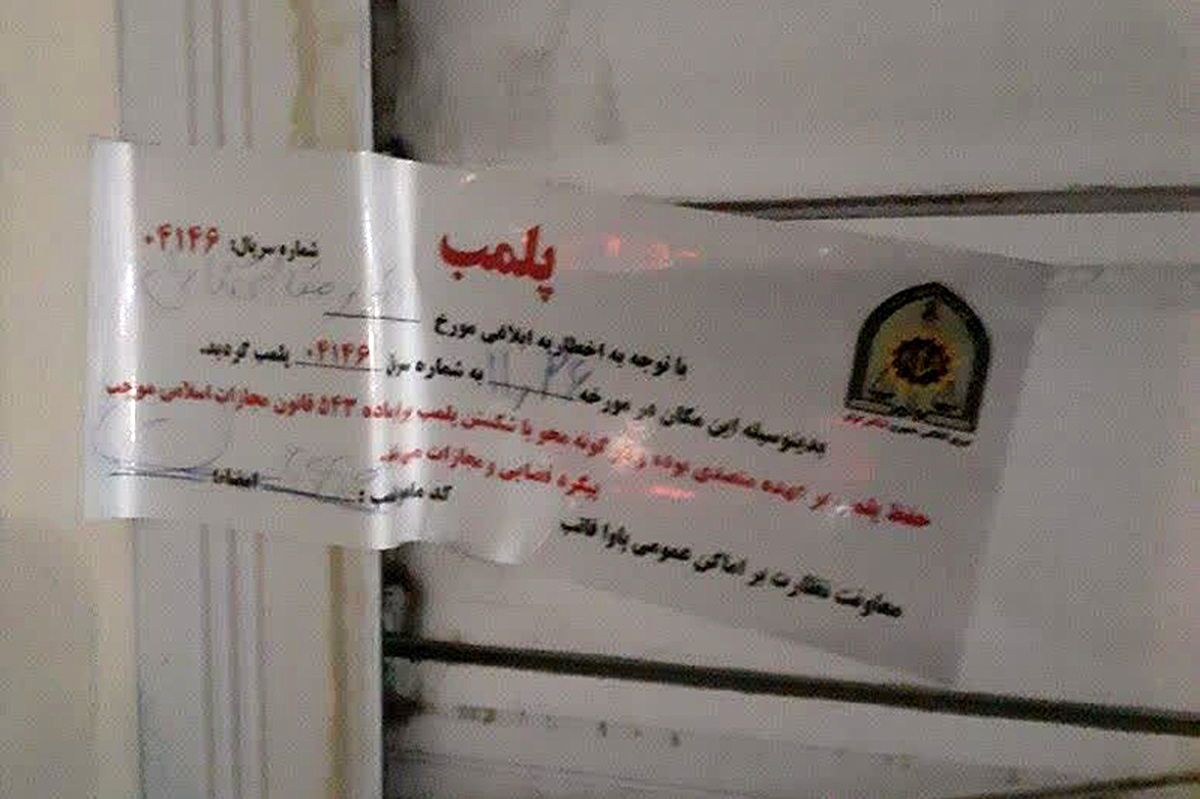 پلمب
شماره سریال: ۰۴۱۴۶
با توجه به اخطاریه ابلاغی مورخ
بدینوسیله این مکان در مورخه به شماره سریال ۰۴۱۴۶ پلمب گردید.
حفظ پلمب بر عهده متصدی بوده و هر گونه محو یا شکستن پلمب برابر ماده ۵۴۳ قانون مجازات اسلامی موجب
پیگرد قضایی و مجازات
کد مامور پلمب: امضاء:
معاونت نظارت بر اماکن عمومی پاوا فاتب